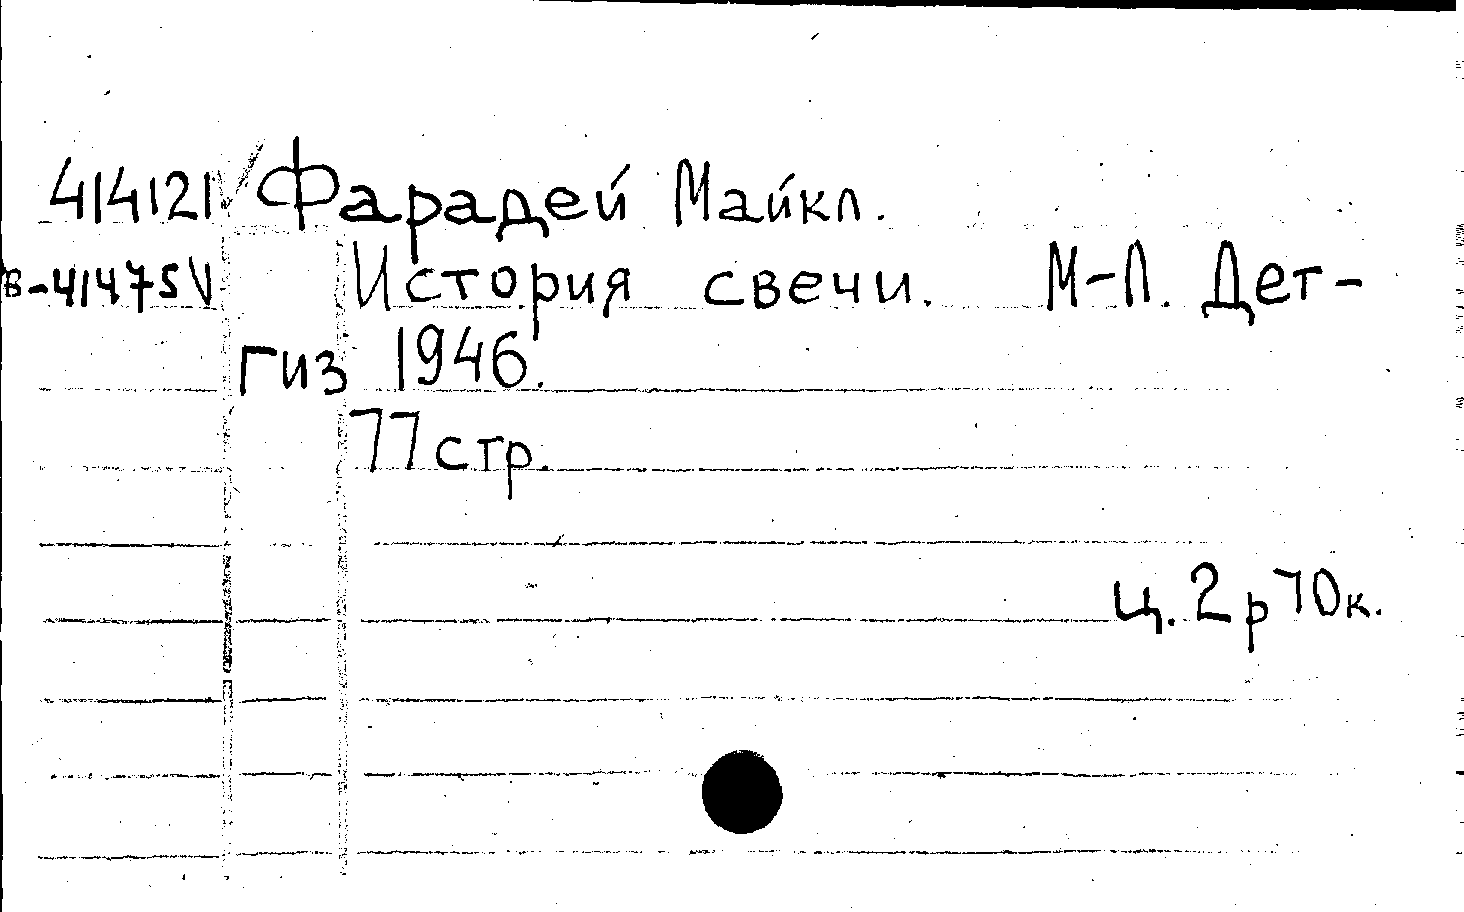 414121 √ Фарадей Майкл.
в-41475 √ История свечи. М-Л. Дет-
гиз 1946.
77 стр.
ц. 2 р 70 к.